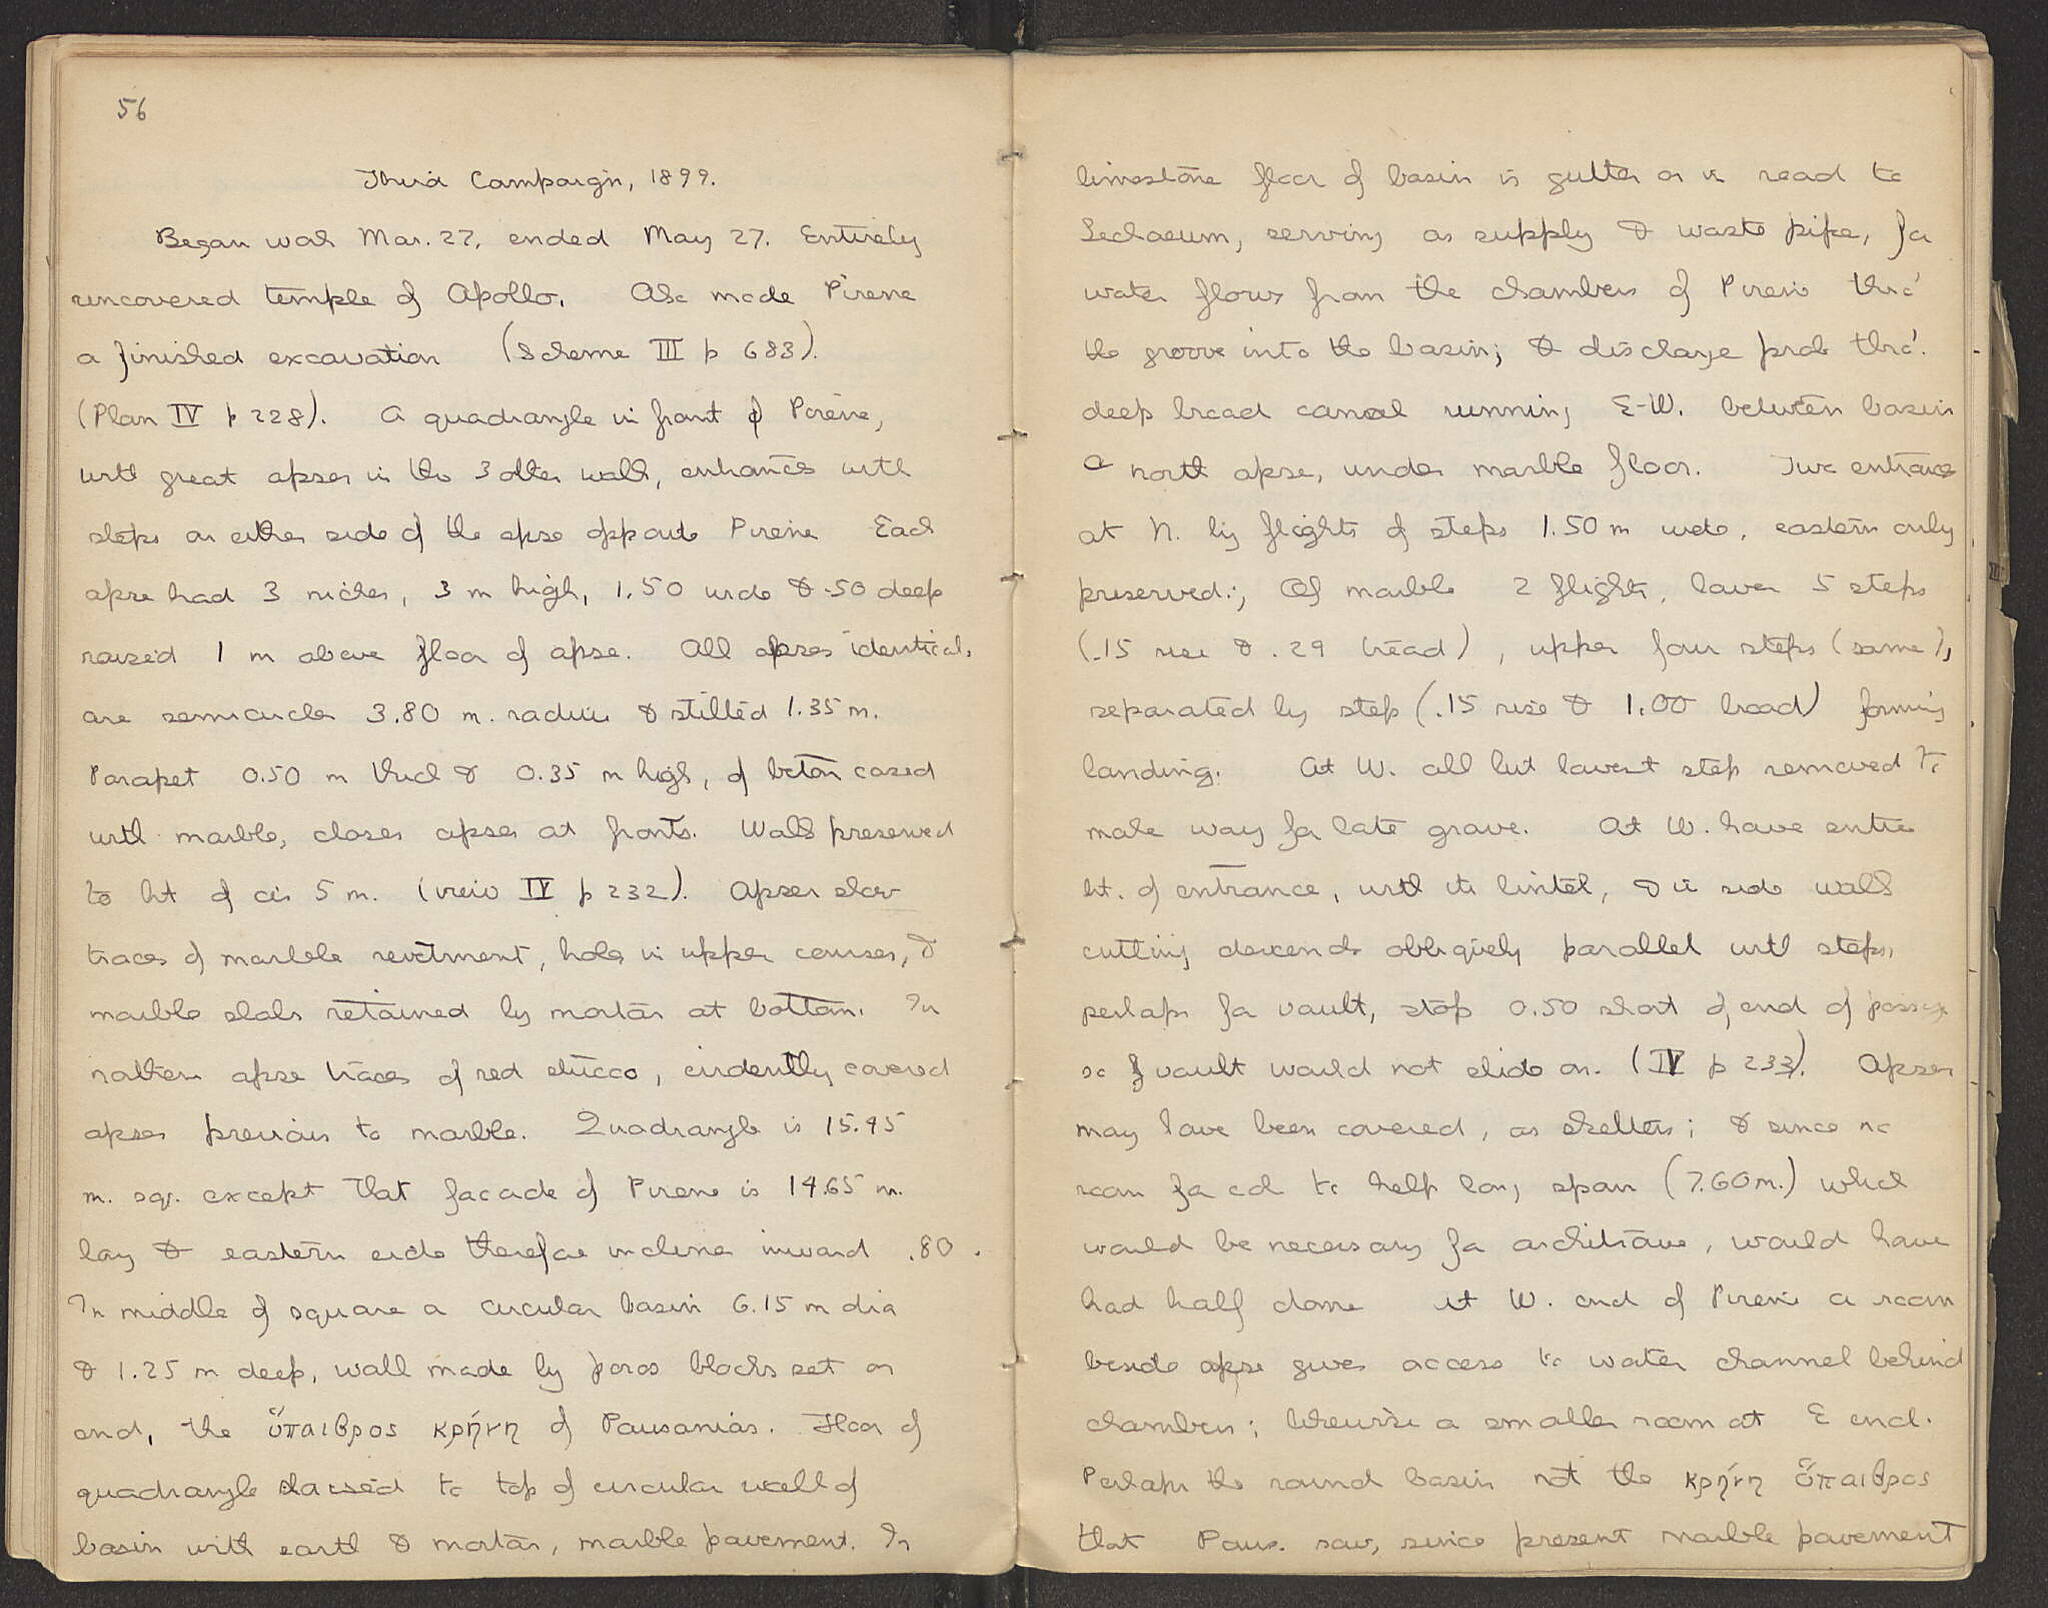 56
Third Campaign, 1899.
Began work Mar. 27, ended May 27. Entirely
uncovered temple of Apollo. Also made Pirene
a finished excavation (Scheme III p 683).
(Plan IV p 228). A quadrangle in front of Pirene,
with great apses in the 3 other walls, entrances with
steps on either side of the apse opposite Pirene Each
apse had 3 niches, 3 m high, 1.50 wide & .50 deep
raised 1 m above floor of apse. All apses identical,
are semicircles 3.80 m. radius & stilted 1.35 m.
Parapet 0.50 m thick & 0.35 m high, of beton cased
with marble, closes apses at fronts. Walls preserved
to ht of cir 5 m. (view IV p 232). Apses show
traces of marble revetment, holes in upper courses, &
marble slabs retained by mortar at bottom. In
northern apse traces of red stucco, evidently covered
apses previous to marble. Quadrangle is 15.45
m. sq. except that facade of Pirene is 14.65 m.
long & eastern side therefore inclines inward .80.
In middle of square a circular basin 6.15 m dia
& 1.25 m deep, wall made by poros blocks set on
end, the ὕπαιθρος κρήνη of Pausanias. Floor of
quadrangle raised to top of circular wall of
basin with earth & mortar, marble pavement. In
limestone floor of basin is gutter as in road to
Lechaeum, serving as supply & waste pipe, for
water flows from the chambers of Pirene thro'
the groove into the basin; & discharge prob thro'
deep broad canal running E-W. between basin
& north apse, under marble floor. Two entrances
at N. by flights of steps 1.50 m wide, eastern only
preserved.; Of marble 2 flights, lower 5 steps
(.15 rise & .29 tread), upper four steps (same),
separated by step (.15 rise & 1.00 broad) forming
landing. At W. all but lowest step removed to
make way for late grave. At W. have entire
ht. of entrance, with its lintel, & in side walls
cutting descends obliquely parallel with steps,
perhaps for vault, stops 0.50 short of end of passage
so vault would not slide on. (IV p 233). Apses
may have been covered, as shelters; & since no
room for col to help long span (7.60 m.) which
would be necessary for architrave, would have
had half dome At W. end of Pirene a room
beside apse gives access to water channel behind
chambers; likewise a smaller room at E end.
Perhaps the round basin not the κρήνη ὕπαιθρος
that Paus. saw, since present marble pavement